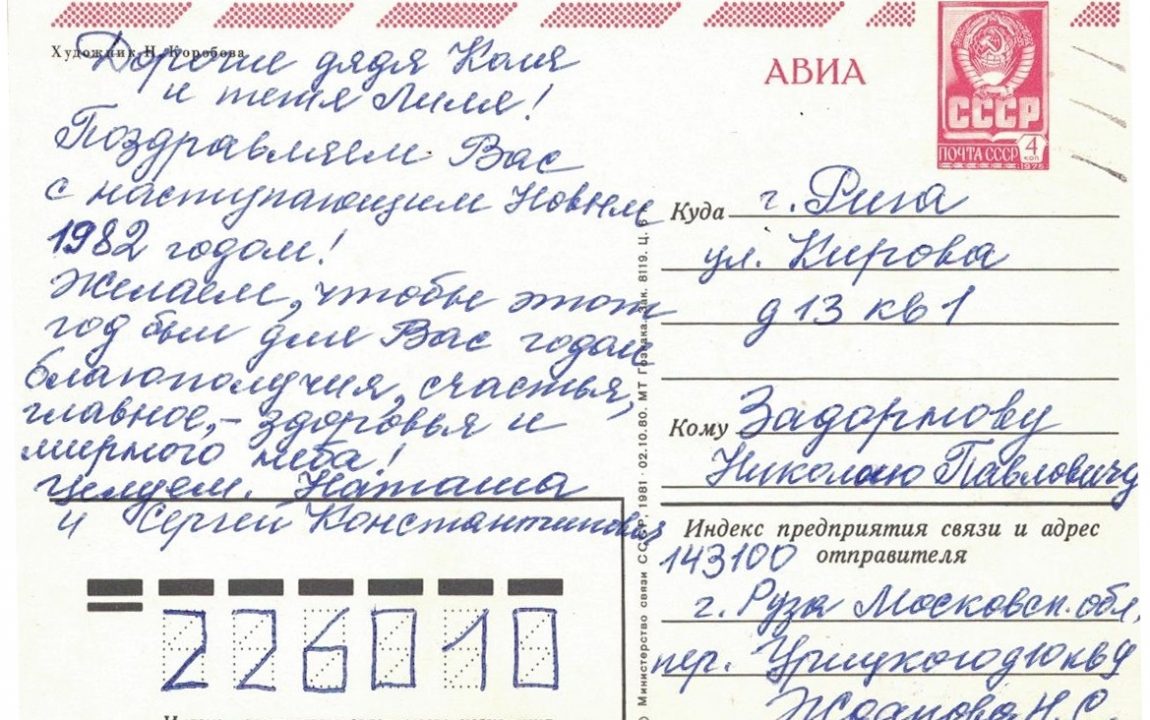 Художник Н. Коробова
Дорогие дядя Коля
и тетя Лиля!
Поздравляем Вас
с наступающим Новым
1982 годом!
Желаем, чтобы этот
год был для Вас годом
благополучия, счастья,
главное,- здоровья и
мирного неба!
Целуем. Наташа
и Сергей Константинович
226010
АВИА
СССР
ПОЧТА СССР 4 коп
1978
Куда г. Рига
ул. Кирова
д 13 кв 1
Кому Задорнову
Николаю Павловичу
Индекс предприятия связи и адрес
отправителя
143100
г. Руза Московск. обл.
пер. Урицкого д 10 кв 9
Жданова Н. С.
© Министерство связи СССР, 1981 · 02.10.80. МТ Гознака. Зак. 8119. Ц. 6